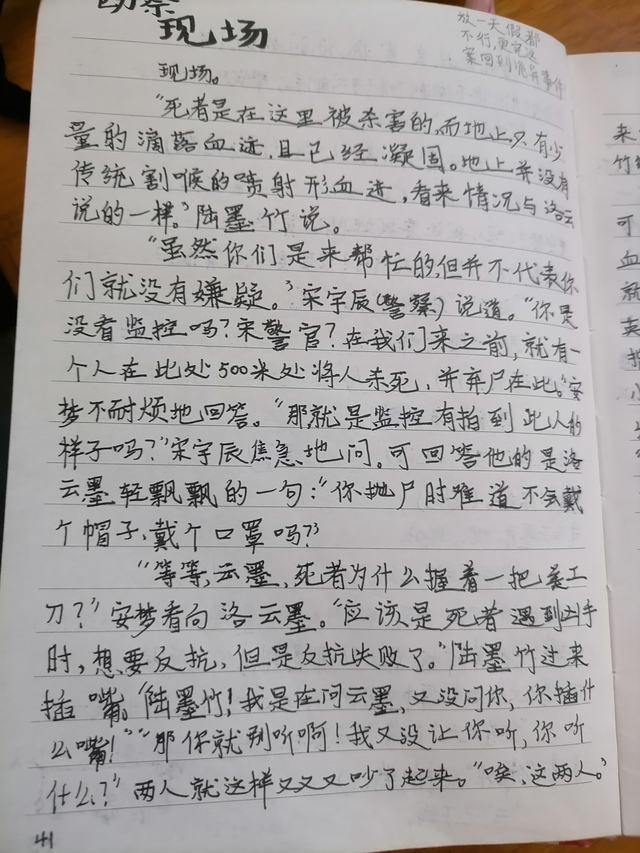 勘察
现场
放一天假都
不行,更完这
案回到诡异事件
现场。
“死者是在这里被杀害的,而地上只有少
量的滴落血迹,且已经凝固。地上并没有
传统割喉的喷射形血迹,看来情况与洛云
说的一样。”陆墨竹说。
“虽然你们是来帮忙的,但并不代表你
们就没有嫌疑。”宋宇辰(警察)说道。“你是
没看监控吗?宋警官?在我们来之前,就有一
个人在此处500米处将人杀死,并弃尸在此。”安
梦不耐烦地回答。“那就是监控有拍到此人的
样子吗?”宋宇辰焦急地问。可回答他的是洛
云墨轻飘飘的一句:“你抛尸时难道不会戴
个帽子、戴个口罩吗?”
“等等,云墨,死者为什么握着一把美工
刀?”安梦看向洛云墨。“应该是死者遇到凶手
时,想要反抗,但是反抗失败了。”陆墨竹过来
插嘴。“陆墨竹!我是在问云墨,又没问你,你插什
么嘴!”“那你就别听啊!我又没让你听,你听
什么?”两人就这样又又又吵了起来。“唉,这两人。”
41
来
竹
可
血
就
卖
小